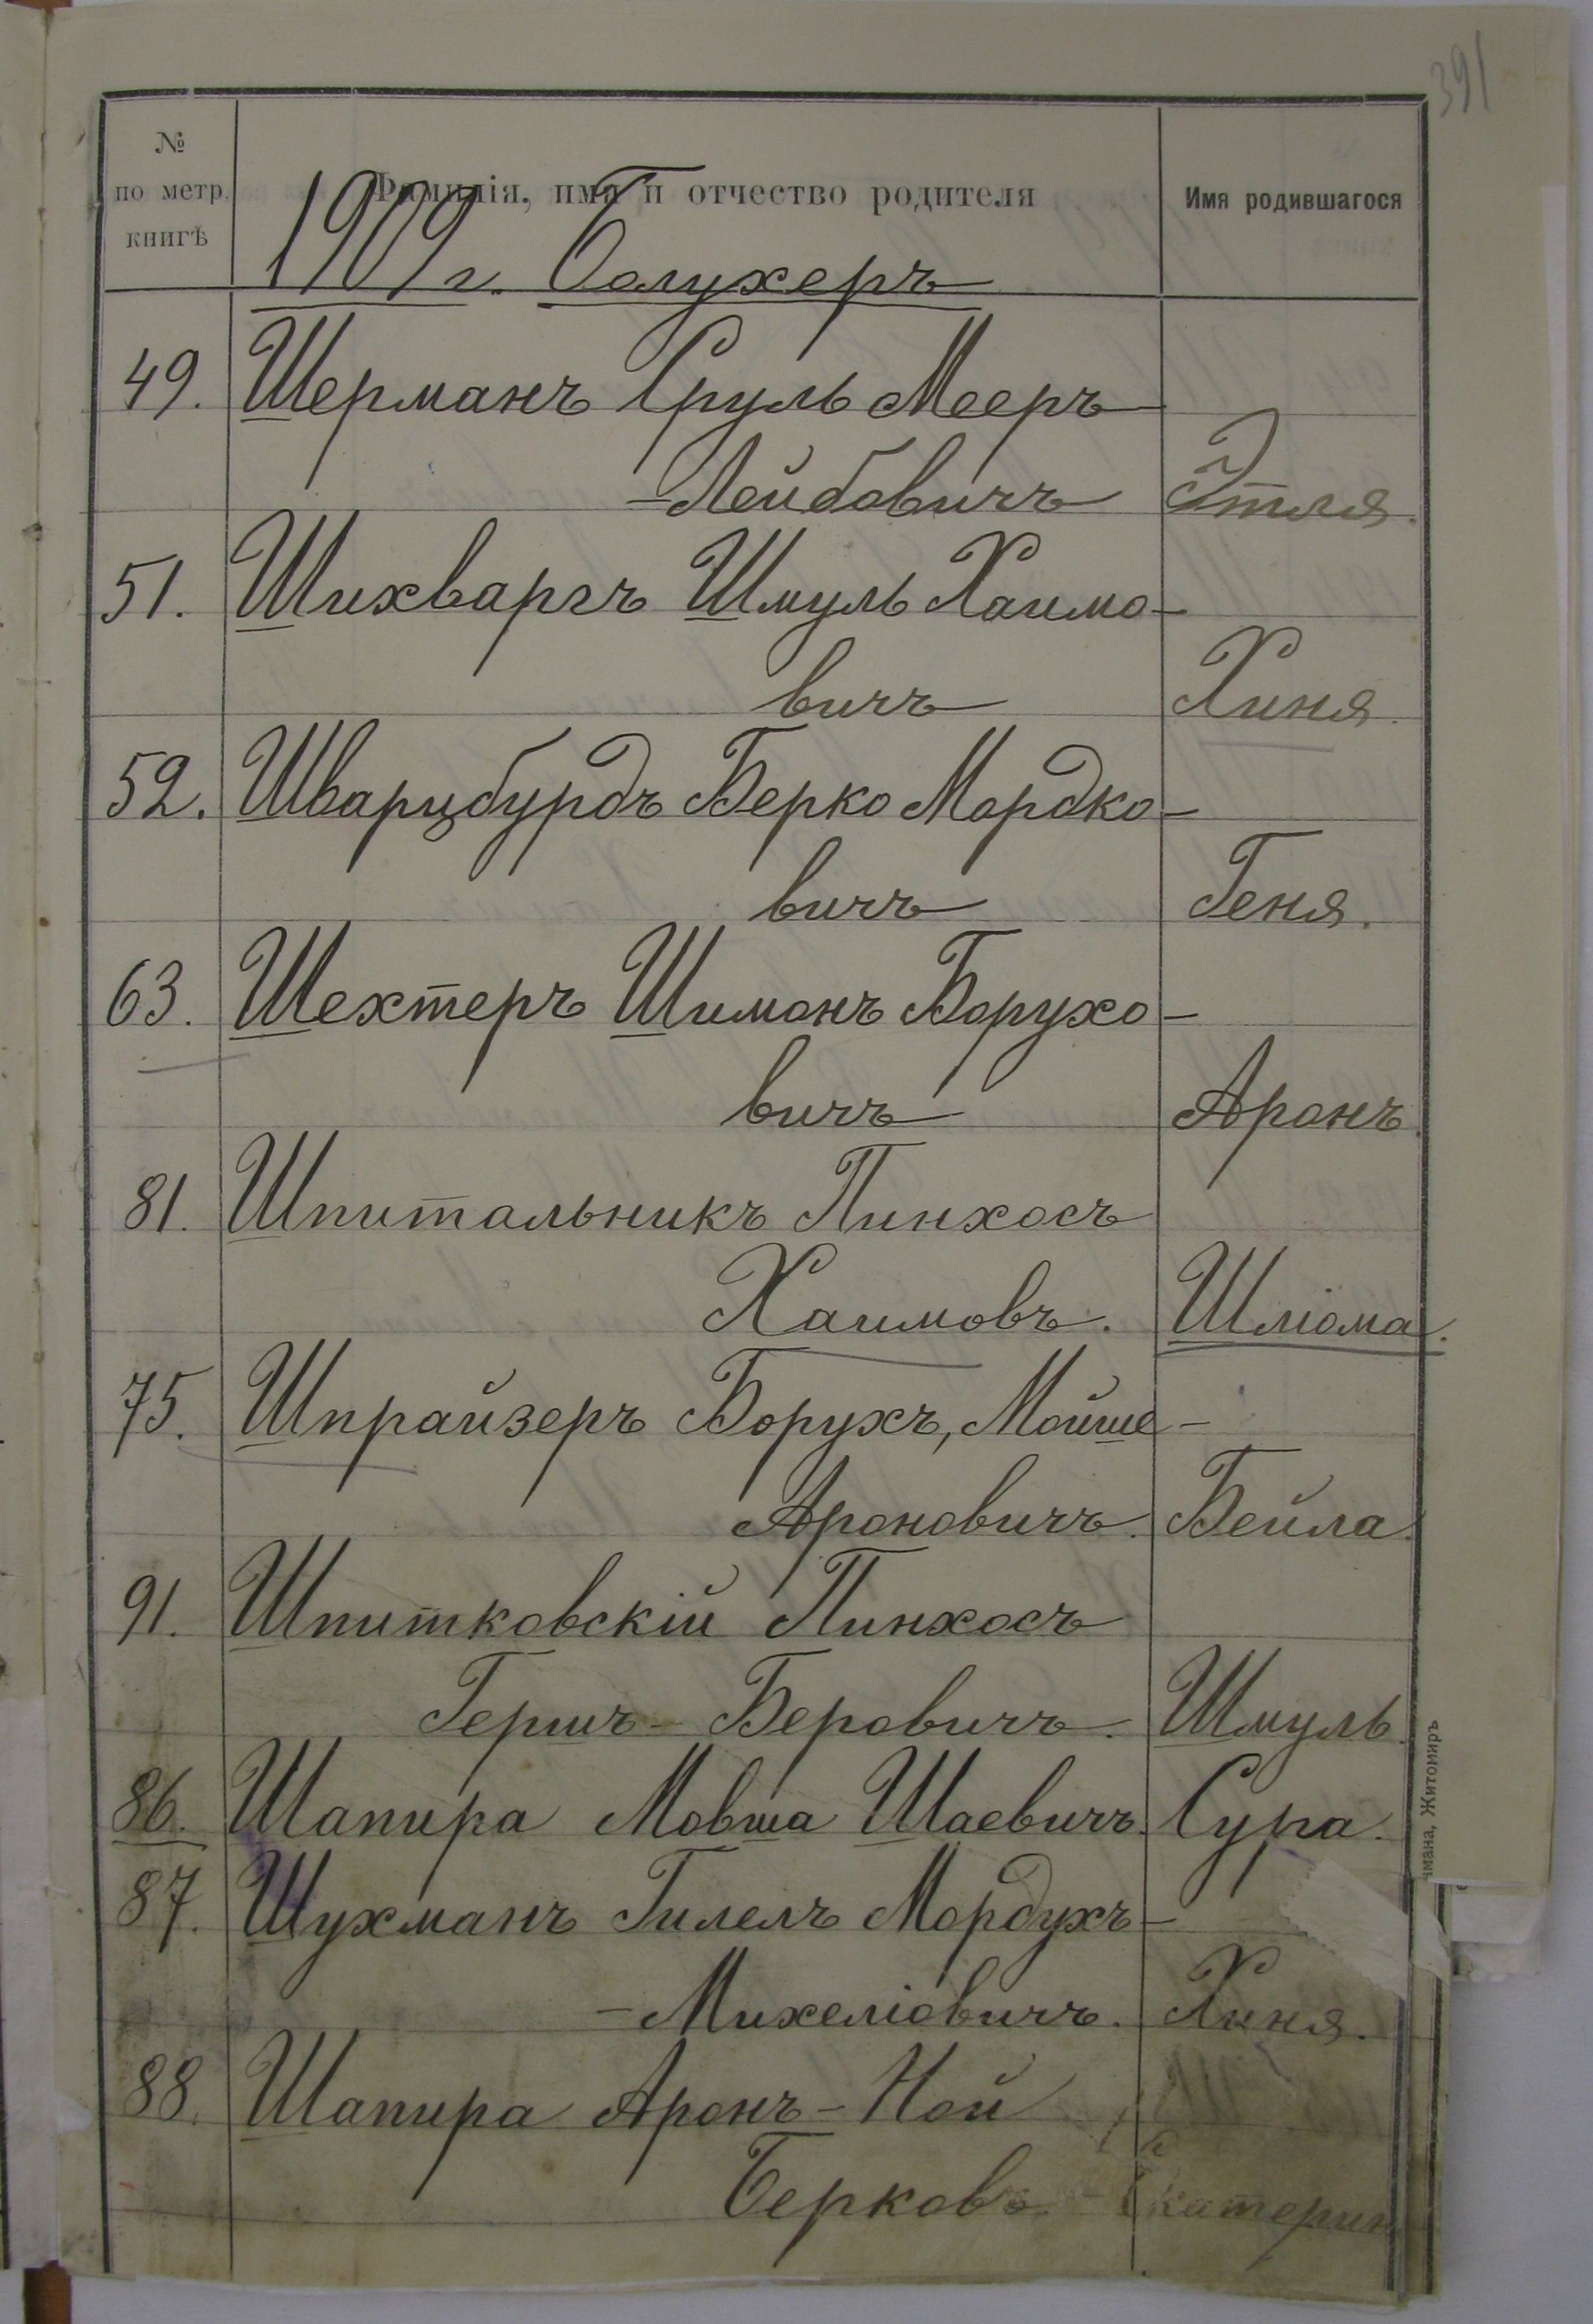 391
№
по метр.
книгѣ
Фамилія, имя и отчество родителя
Имя родившагося
1909 г. Болухеръ
49. Шерманъ Сруль Мееръ
-Лейбовичъ Этля.
51. Шихваргъ Шмуль Хаимо-
вичъ Хиня.
52. Шварцбурдъ Берко Мордко-
вичъ Геня.
63. Шехтеръ Шимонъ Борухо-
вичъ Аронъ.
81. Шпитальникъ Пинхосъ
Хаимовъ. Шліома.
75. Шпрайзеръ Борухъ, Мойше-
Ароновичъ. Бейла.
91. Шпитковскій Пинхосъ
Гершъ-Беровичъ. Шмуль.
86. Шапира Мовша Шаевичъ. Сура.
87. Шухманъ Гилелъ Мордухъ-
-Михеліовичъ. Хиня.
88. Шапира Аронъ-Ной
Берковъ Екатерин
Житомиръ